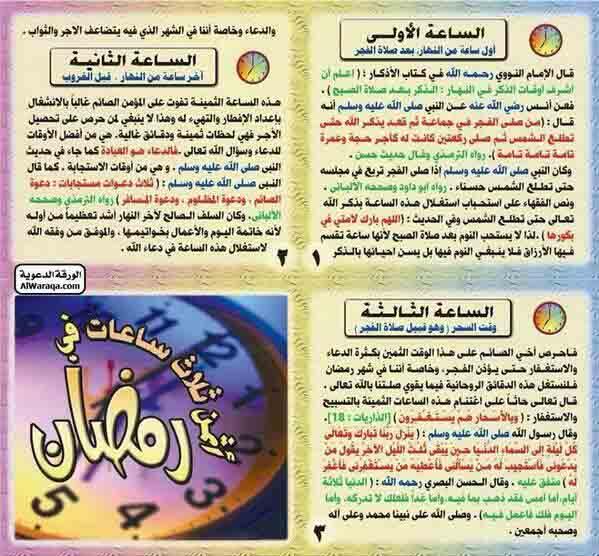 الساعة الأولى
أول ساعة من النهار، بعد صلاة الفجر
قال الإمام النووي رحمه الله في كتاب الأذكار : ( اعلم أن
أشرف أوقات الذكر في النهار : الذكر بعد صلاة الصبح ) .
فعن أنس رضي الله عنه عن النبي صلى الله عليه وسلم أنه
قال : ( من صلى الفجر في جماعة ثم قعد يذكر الله حتى
تطلع الشمس ثم صلى ركعتين كانت له كأجر حجة وعمرة
تامة تامة تامة ) . رواه الترمذي وقال حديث حسن .
وكان النبي صلى الله عليه وسلم إذا صلى الفجر تربع في مجلسه
حتى تطلع الشمس حسناء . رواه أبو داود وصححه الألباني .
ونص الفقهاء على استحباب استغلال هذه الساعة بذكر الله
تعالى حتى تطلع الشمس وفي الحديث : ( اللهم بارك لأمتي في
بكورها ) . لذا يستحب النوم بعد صلاة الصبح لأنها ساعة تقسم
فيها الأرزاق فلا ينبغي النوم فيها بل يسن احيائها بالذكر
١
والدعاء وخاصة أننا في الشهر الذي فيه يتضاعف الاجر والثواب .
الساعة الثانية
آخر ساعة من النهار . قبل الغروب
هذه الساعة الثمينة تفوت على المؤمن الصائم غالباً بالانشغال
بإعداد الإفطار والتهيء له وهذا لا ينبغي لمن حرص على تحصيل
الأجر فهي لحظات ثمينة ودقائق غالية . هي من أفضل الأوقات
للدعاء وسؤال الله تعالى . فالدعاء هو العبادة كما جاء في حديث
النبي صلى الله عليه وسلم . وهي من أوقات الاستجابة . كما قال
النبي صلى الله عليه وسلم : ( ثلاث دعوات مستجابات : دعوة
الصائم . ودعوة المظلوم . ودعوة المسافر ) رواه الترمذي وصححه
الألباني . وكان السلف الصالح لآخر النهار أشد تعظيماً من أوله
لأنه خاتمة اليوم والأعمال بخواتيمها . والموفق من وفقه الله
لاستغلال هذه الساعة في دعاء الله .
٢
الساعة الثالثة
وقت السحر ( وهو قبيل صلاة الفجر )
فاحرص أخي الصائم على هذا الوقت الثمين بكثرة الدعاء
والاستغفار حتى يؤذن الفجر، وخاصة أننا في شهر رمضان
فلنستغل هذه الدقائق الروحانية فيما يقوي صلتنا بالله تعالى .
قال تعالى حاثاً على اغتنام هذه الساعات الثمينة بالتسبيح
والاستغفار : ( وبالأسحار هم يستغفرون ) [الذاريات : 18].
وقال رسول الله صلى الله عليه وسلم : ( ينزل ربنا تبارك وتعالى
كل ليلة إلى السماء الدنيا حين يبقى ثلث الليل الآخر يقول من
يدعوني فأستجيب له من يسألني فأعطيه من يستغفرني فأغفر
له ) متفق عليه . وقال الحسن البصري رحمه الله : ( الدنيا ثلاثة
أيام، أما أمس فقد ذهب بما فيه، وأما غداً فلعلك لا تدركه، وأما
اليوم فلك فاعمل فيه ) . وصلى الله على نبينا محمد وعلى آله
وصحبه أجمعين .
٣
الورقة الدعوية
AlWaraqa.com
أثمن ثلاث ساعات في
رمضان
12
1
2
3
4
5